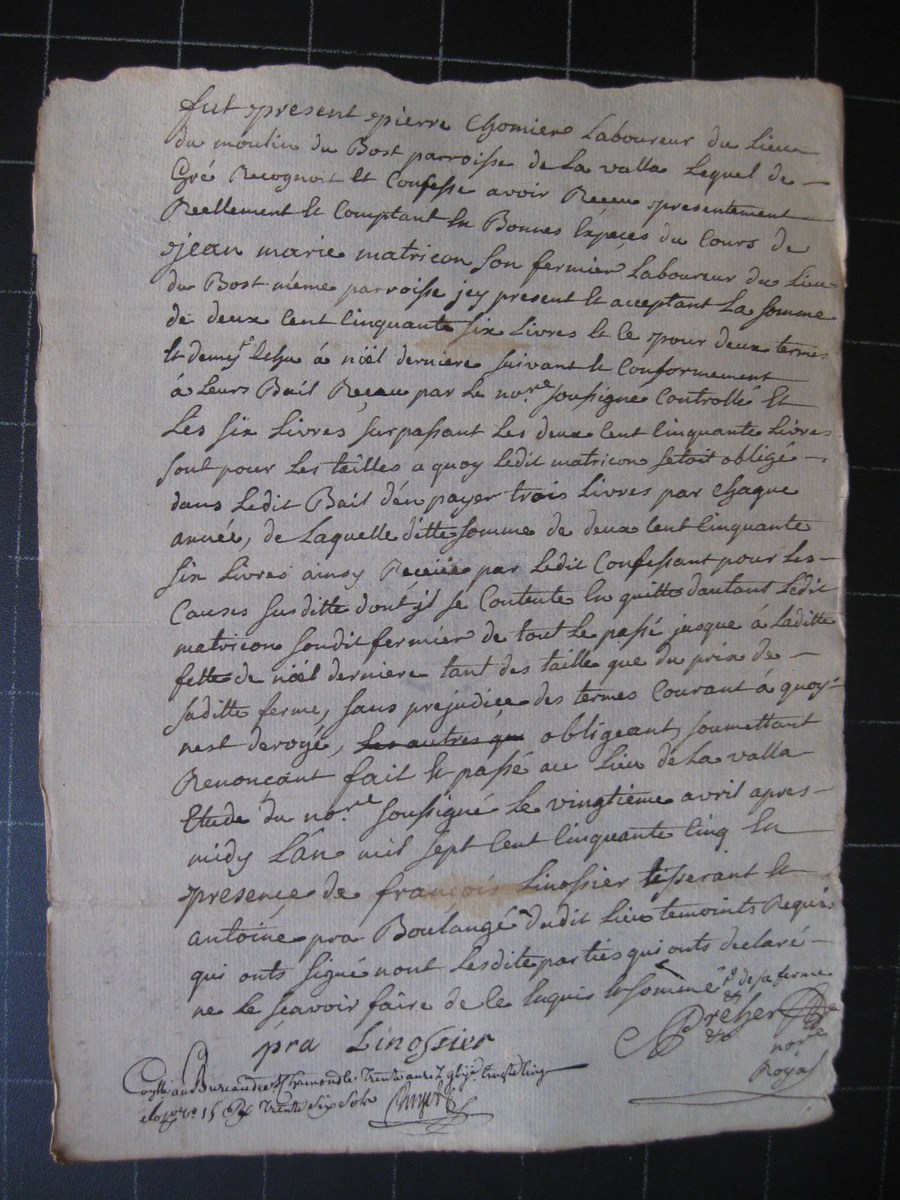 fut present pierre Chomier Laboureur du Lieu
du moulin du Bost parroisse de La valla Lequel de
Gré Recognoit Et Confesse avoir Receu presentement
Reellement Et Comptant En Bonnes Espeçes du Cours de
jean marie matricon son fermier Laboureur du Lieu
du Bost méme parroisse jcy present Et acceptant La somme
de deux Cent Cinquante six Livres Et Ce pour deux termes
Et demy Echu á nöel derniere suivant Et Conformement
á Leurs Bail Reçeu par Le nore soussigné Controllé Et
Les six Livres surpassant Les deux Cent Cinquante Livres
sont pour Les tailles a quoy Ledit matricon setoit obligé
dans Ledit Bail d'én payer trois Livres par Chaque
année, de Laquelle ditte somme de deux Cent Cinquante
six Livres ainsy Receüe par Ledit Confessant pour Les
Causes susditte dont jl se Contente En quitte dautant Ledit
matricon sondit fermier de tout Le passé jusque á Laditte
fette de nöel derniere tant des taille que du prix de
saditte ferme, sans prejudice des termes Courant á quoy
nest derogé, Les autres qu obligeant, soumettant
Renonçant fait Et passé au Lieu de La valla
Etude du nore soussigné Le vingtiéme avril apres
midy L'án mil sept Cent Cinquante Cinq En
presence de françois Linossier tisserant Et
antoine pra Boulangé dudit Lieu temoints Requis
qui onts signé nont Lesdite parties qui onts declaré
ne Le sçavoir faire de Ce Enquis Et sommé de sa ferme
pra Linossier
nore
Royal
au Bureau de St Chamond le Trente avril
Trente six sols